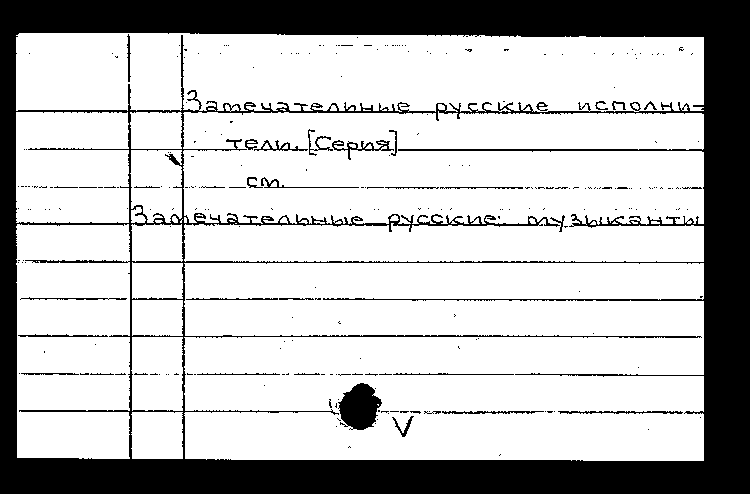 Замечательные русские исполни-
тели. [Серия]
см.
Замечательные русские музыканты
V